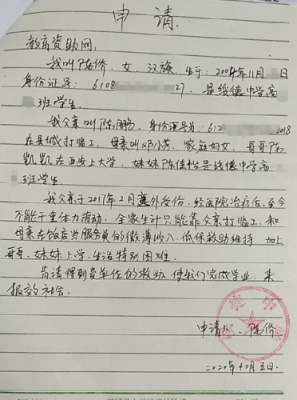 申请
教育资助网:
我叫陈侨，女，汉族，生于: 2004年11月 日
身份证号: 6108 27. 是绥德中学高
班学生.
我父亲叫陈鹏，身份证号为: 612 2018
在县城打临工，母亲叫邓小芳，家庭妇女，哥哥陈
凯凯在西安上大学，妹妹陈佳怡是绥德中学高
班学生
我父亲于2017年2月意外受伤，经医院治疗后，至今
不能干重体力劳动. 全家生计只能靠父亲打临工、和
母亲在饭店当服务员的微薄收入、低保救助维持、加上
哥哥、妹妹上学、生活特别困难.
肯请得到贵单位的救助，使我们完成学业，来
报效社会.
申请人: 陈侨
2020年十月五日.